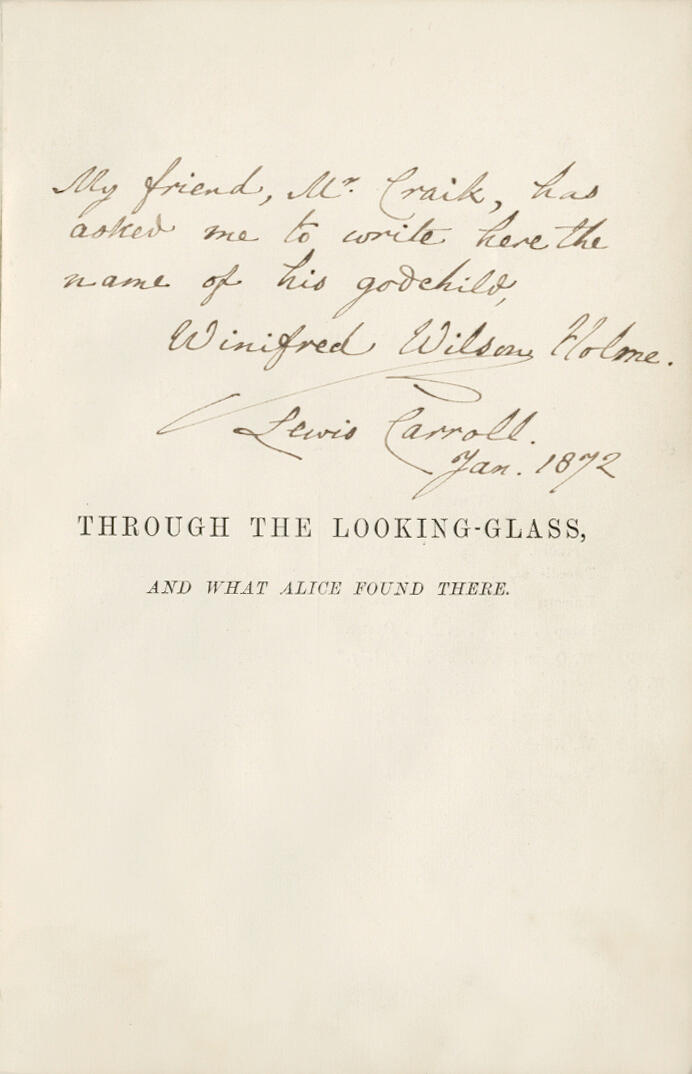 My friend, Mr. Craik, has
asked me to write here the
name of his godchild,
Winifred Wilson Holme.
Lewis Carroll.
Jan. 1872
THROUGH THE LOOKING-GLASS,
AND WHAT ALICE FOUND THERE.